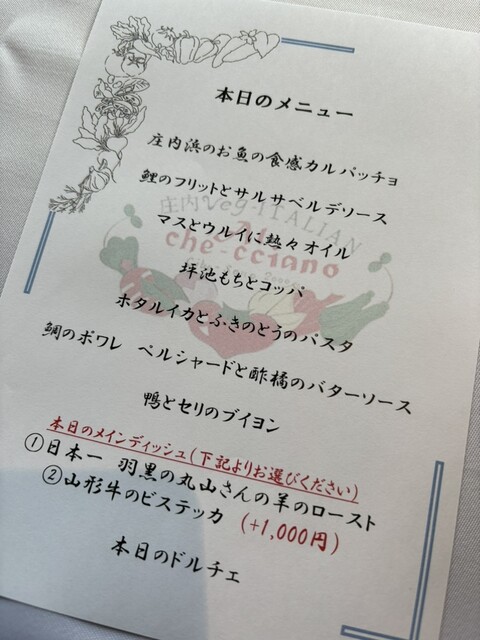 本日のメニュー
庄内浜のお魚の食感カルパッチョ
鯉のフリットとサルサベルデソース
庄内Veg-ITALIAN
マスとウルイに熱々オイル
che-cciano
坪池もちとコッパ
ホタルイカとふきのとうのパスタ
鯛のポワレ ペルシャードと酢橘のバターソース
鴨とセリのブイヨン
本日のメインディッシュ(下記よりお選びください)
①日本一 羽黒の丸山さんの羊のロースト
②山形牛のビステッカ (+1,000円)
本日のドルチェ